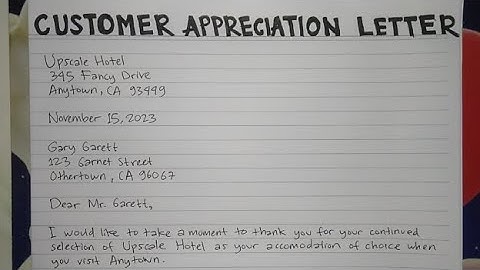 CUSTOMER APPRECIATION LETTER
Upscale Hotel
345 Fancy Drive
Anytown, CA 93449
November 15, 2023
Gary Garett
123 Garnet Street
Othertown, CA 96067
Dear Mr. Garett,
I would like to take a moment to thank you for your continued
selection of Upscale Hotel as your accomodation of choice when
you visit Anytown.